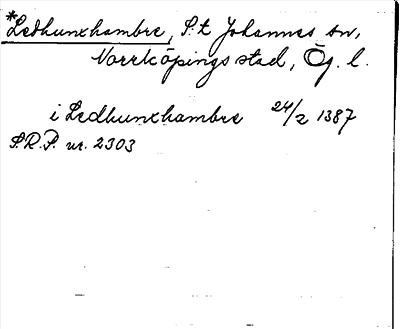 *Ledhunxhambre, S:t Johannes sn,
Norrköpings stad, Ög. l.
i Ledhunxhambre 24/2 1387
S.R.P. nr. 2303